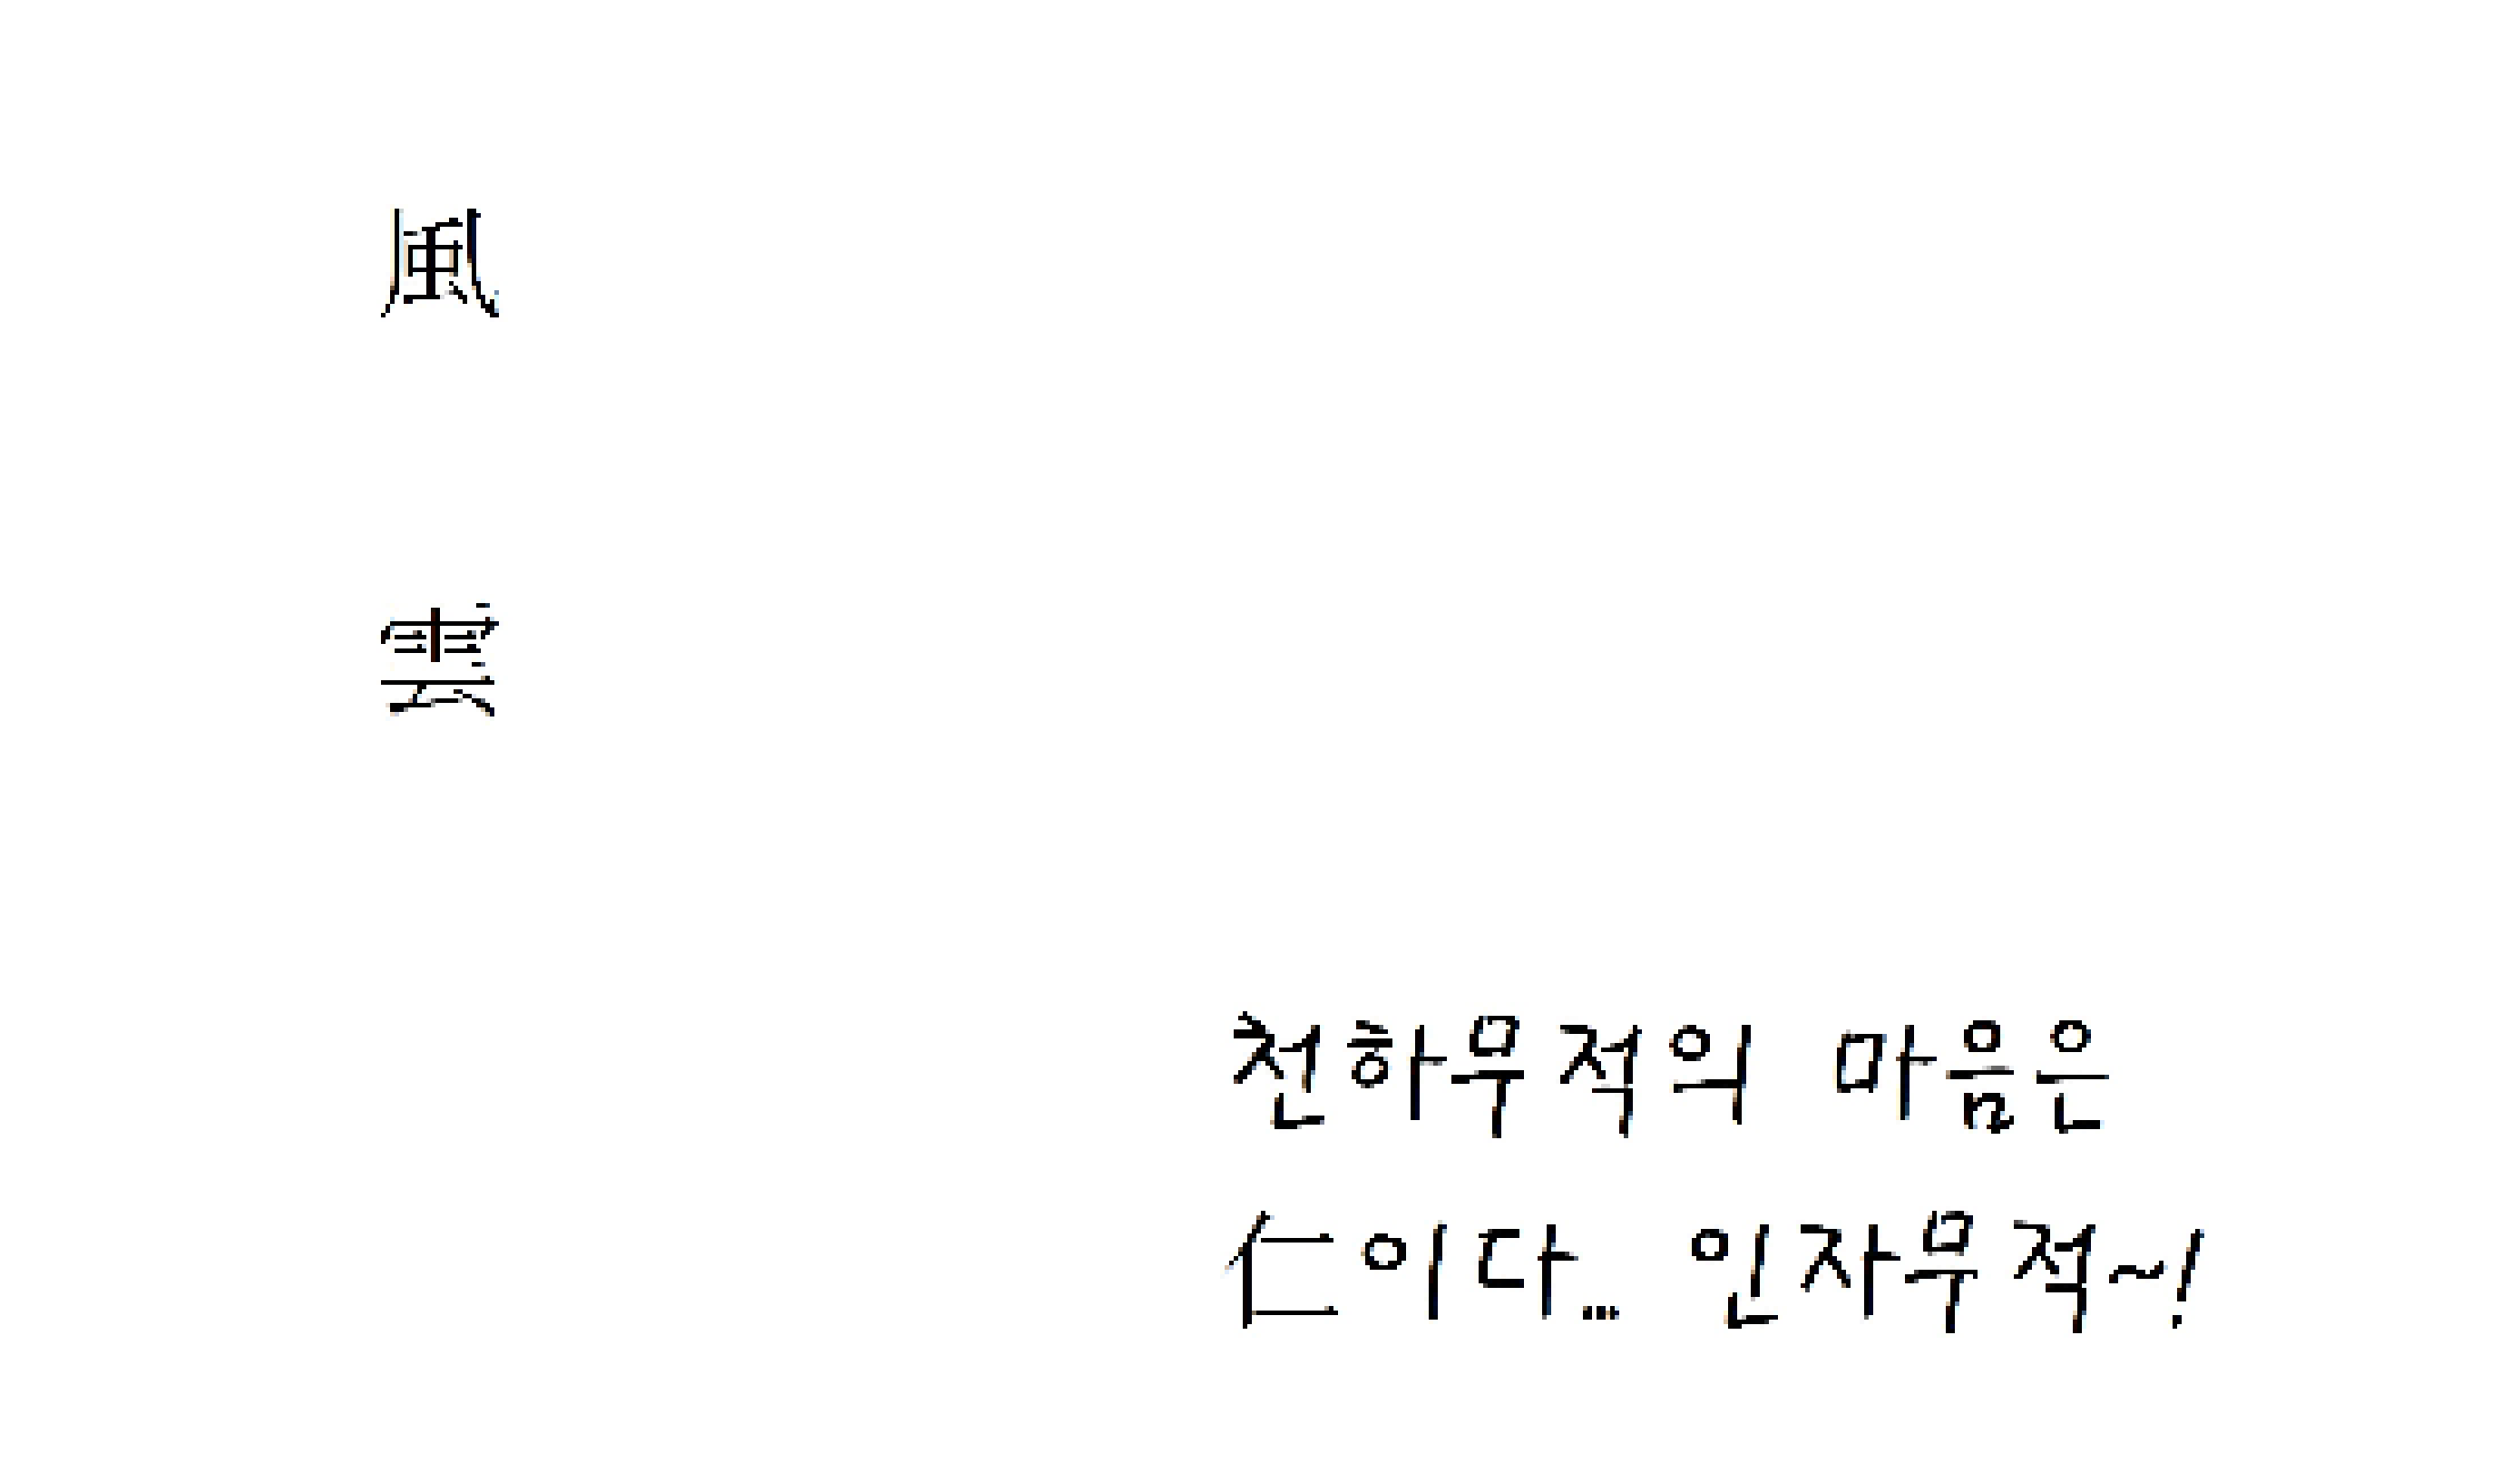 風
雲
천하무적의 마음은
仁이다... 인자무적~!